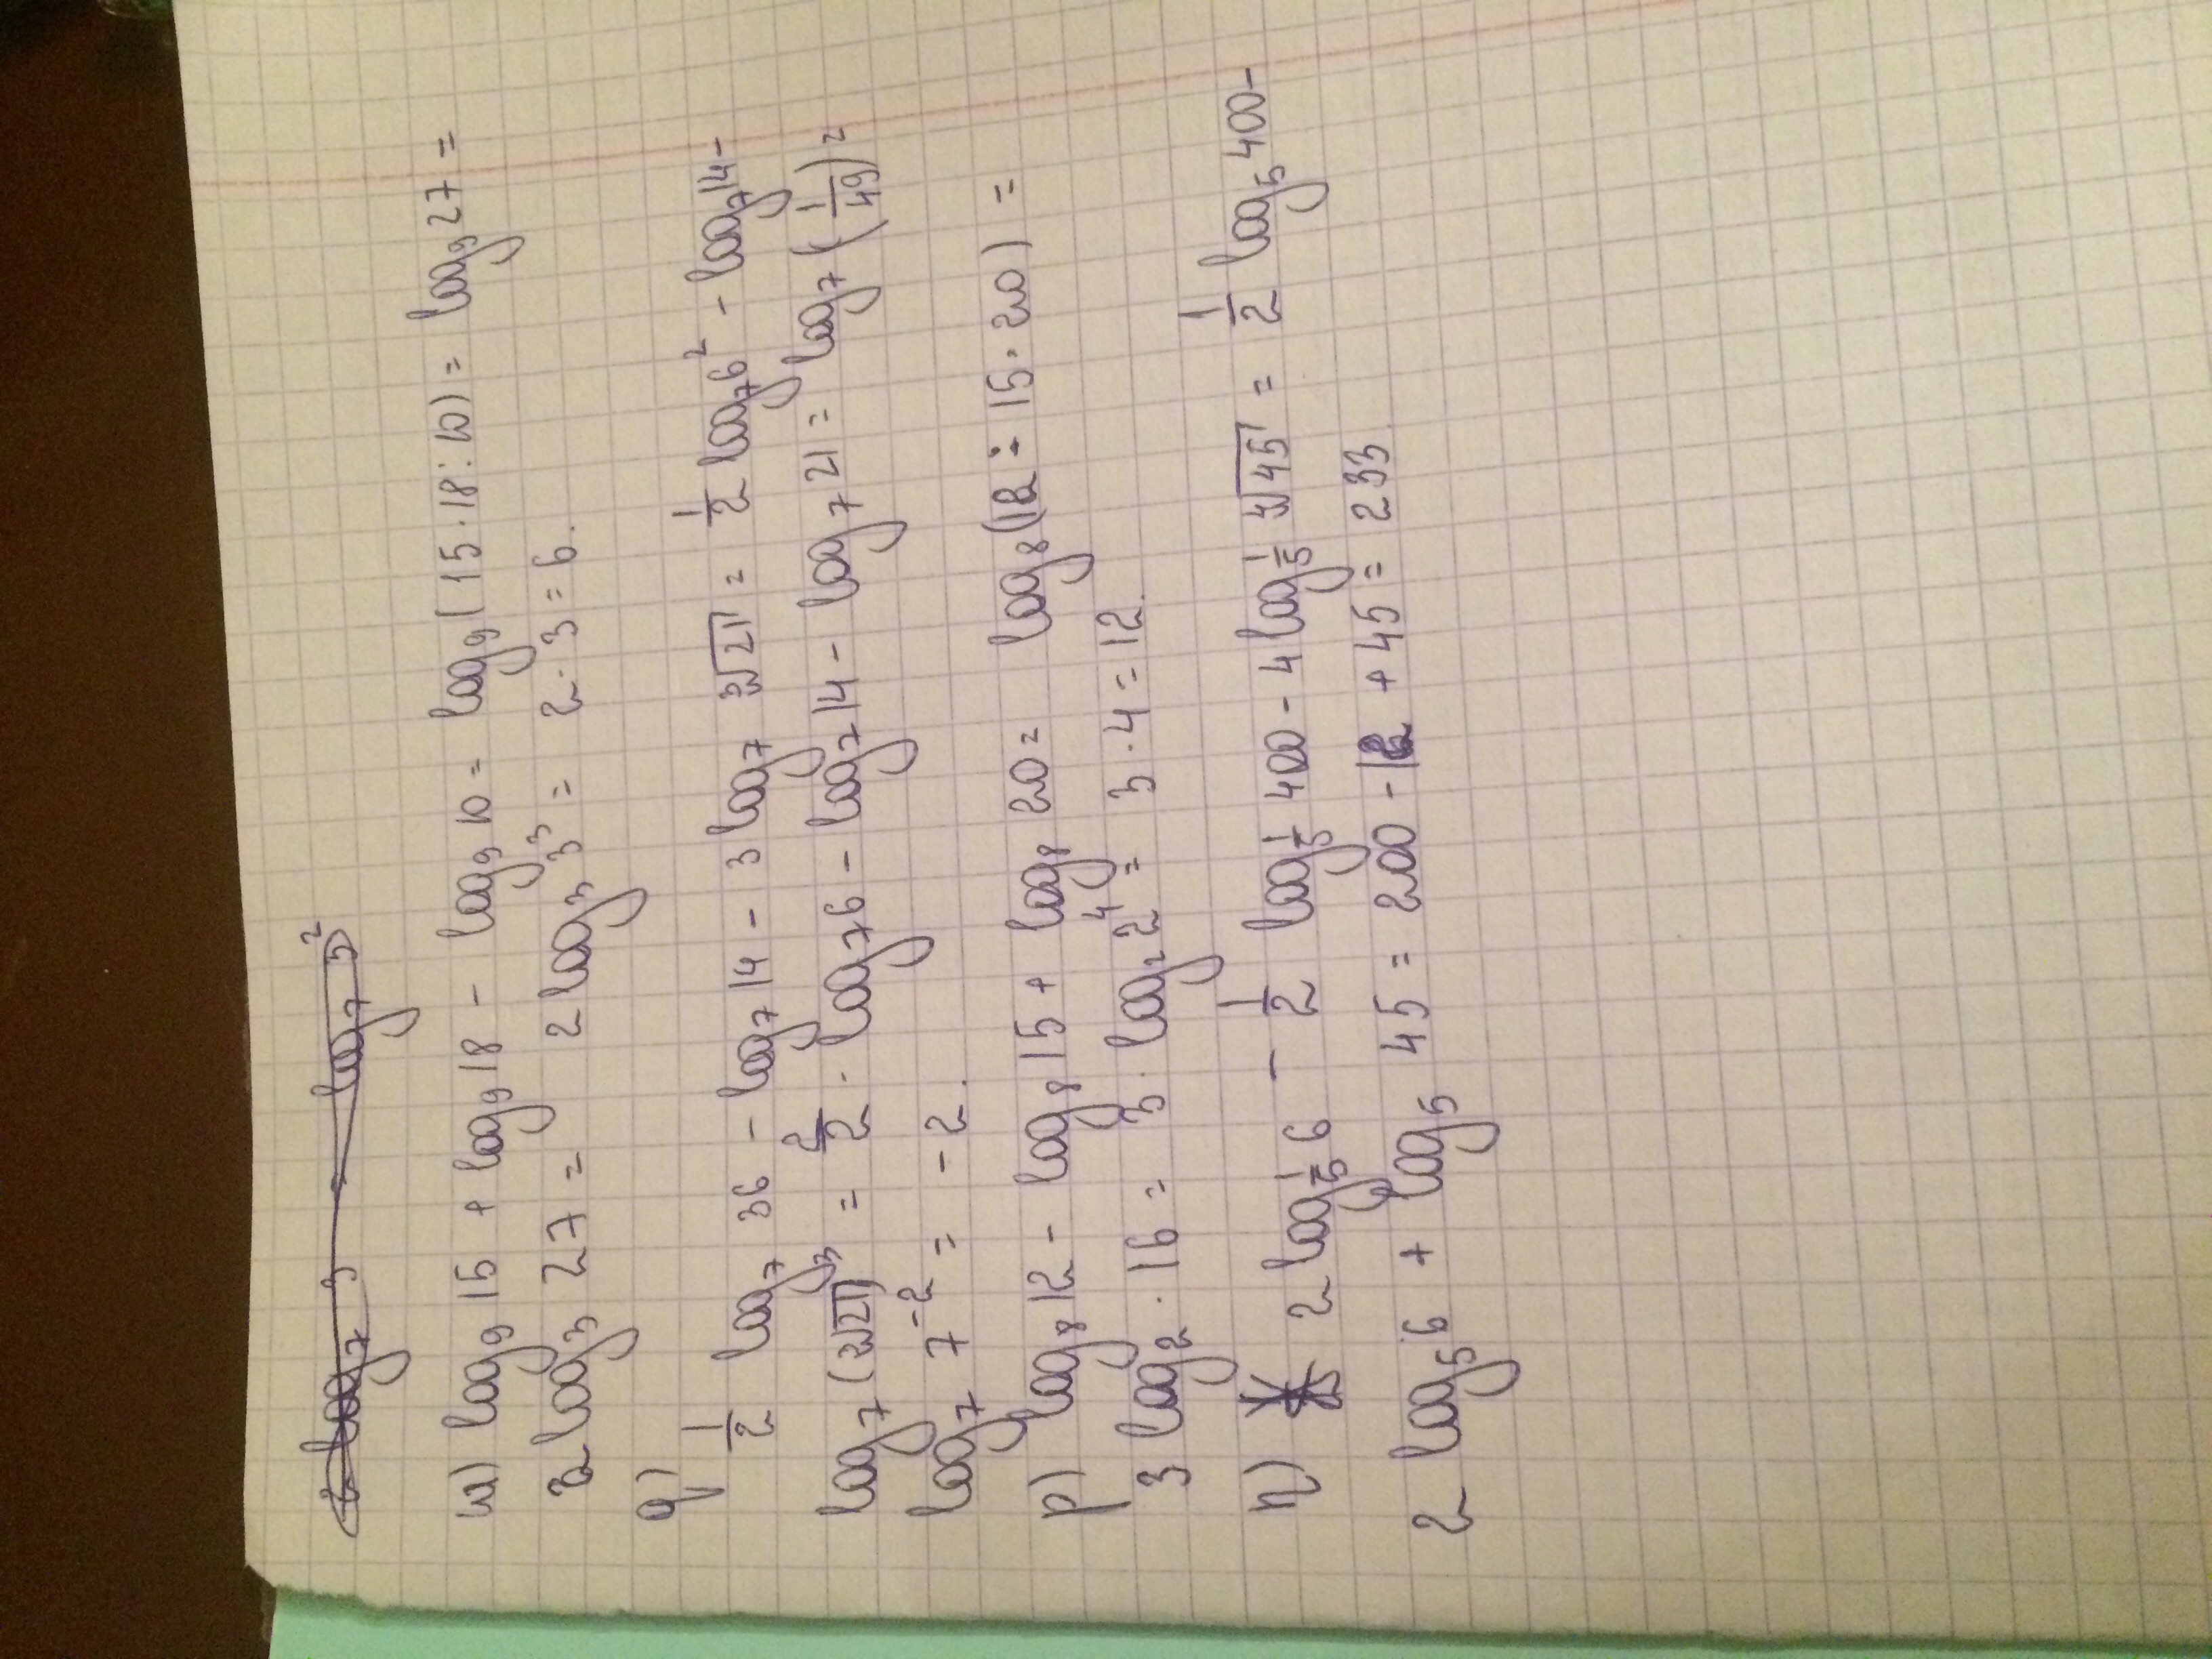 ш) log₉ 15 + log₉ 18 - log₉ 10 = log₉ (15 · 18 : 10) = log₉ 27 =
2 log₃ 27 = 2 log₃ 3³ = 2 · 3 = 6.
q) 1/2 log₇ 36 - log₇ 14 - 3 log₇ ³√21 = 1/2 log₇ 6² - log₇ 14 -
log₇ (³√21)³ = 2/2 · log₇ 6 - log₇ 14 - log₇ 21 = log₇ (1/49)²
log₇ 7⁻² = -2.
p) log₈ 12 - log₈ 15 + log₈ 20 = log₈ (12 ÷ 15 · 20) =
3 log₂ · 16 = 3 · log₂ 2⁴ = 3 · 4 = 12.
η) 2 log₁/₅ 6 - 1/2 log₁/₅ 400 - 4 log₁/₅ ⁴√45 = 1/2 log₅ 400 -
2 log₅ 6 + log₅ 45 = 200 - 12 + 45 = 233